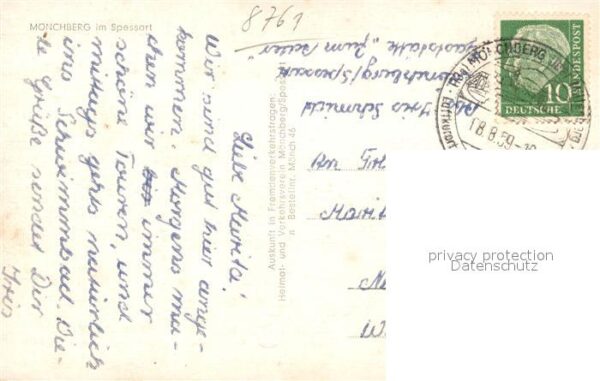 MÖNCHBERG im Spessart
8761
Liebe Marita!
Wir sind gut hier ange-
kommen. Morgens ma-
chen wir immer
schöne Touren, und
mittags gehts natürlich
ins Schwimmbad. Die-
le Grüße sendet Dir
Iris
Auskunft in Fremdenverkehrsfragen:
Heimat- und Verkehrsverein Mönchberg/Spessart
Bestellnr. Mönch 46
Abs. Iris Schmidt
Mönchberg/Spessart
Gaststätte "Zum
MÖNCHBERG
08.8.59
10
DEUTSCHE
BUNDESPOST
privacy protection
Datenschutz